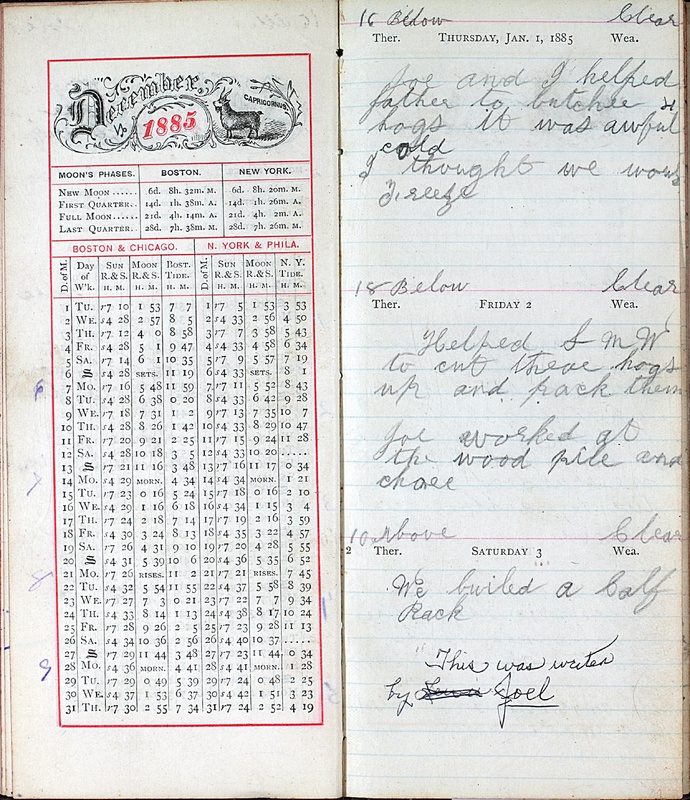 December
1885
CAPRICORNUS.
MOON'S PHASES. BOSTON. NEW YORK.
NEW MOON...... 6d. 8h. 32m. M. 6d. 8h. 20m. M.
FIRST QUARTER.. 14d. 1h. 38m. A. 14d. 1h. 26m. A.
FULL MOON...... 21d. 4h. 14m. A. 21d. 4h. 2m. A.
LAST QUARTER... 28d. 7h. 38m. M. 28d. 7h. 26m. M.
BOSTON & CHICAGO. N. YORK & PHILA.
D. of M. Day of W'k. SUN R.&S. MOON R.&S. BOST. TIDE. D. of M. SUN R.&S. MOON R.&S. N. Y. TIDE.
H. M. H. M. H. M. H. M. H. M. H. M.
1 TU. r7 10 1 53 7 7 1 r7 5 1 53 3 53
2 WE. s4 28 2 57 8 5 2 s4 33 2 56 4 50
3 TH. r7 12 4 0 8 58 3 r7 7 3 58 5 43
4 FR. s4 28 5 1 9 47 4 s4 33 4 58 6 34
5 SA. r7 14 6 1 10 35 5 r7 9 5 57 7 19
6 S s4 28 SETS. 11 19 6 s4 33 SETS. 8 1
7 MO. r7 16 5 48 11 59 7 r7 11 5 52 8 43
8 TU. s4 28 6 38 0 20 8 s4 33 6 42 9 28
9 WE. r7 18 7 31 1 2 9 r7 13 7 35 10 7
10 TH. s4 28 8 26 1 42 10 s4 33 8 29 10 47
11 FR. r7 20 9 21 2 25 11 r7 15 9 24 11 28
12 SA. s4 28 10 18 3 5 12 s4 33 10 20 ......
13 S r7 21 11 16 3 48 13 r7 16 11 17 0 34
14 MO. s4 29 MORN. 4 34 14 s4 34 MORN. 1 21
15 TU. r7 23 0 16 5 24 15 r7 18 0 16 2 10
16 WE. s4 29 1 16 6 18 16 s4 34 1 15 3 4
17 TH. r7 24 2 18 7 14 17 r7 19 2 16 3 59
18 FR. s4 30 3 24 8 13 18 s4 35 3 22 4 57
19 SA. r7 26 4 31 9 10 19 r7 20 4 28 5 55
20 S s4 31 5 39 10 6 20 s4 36 5 35 6 52
21 MO. r7 26 RISES. 11 2 21 r7 21 RISES. 7 45
22 TU. s4 32 5 54 11 55 22 s4 37 5 58 8 39
23 WE. r7 27 7 3 0 21 23 r7 22 7 7 9 34
24 TH. s4 33 8 14 1 13 24 s4 38 8 17 10 24
25 FR. r7 28 9 26 2 5 25 r7 23 9 28 11 13
26 SA. s4 34 10 36 2 56 26 s4 40 10 37 ......
27 S r7 29 11 44 3 48 27 r7 23 11 44 0 34
28 MO. s4 36 MORN. 4 41 28 s4 41 MORN. 1 28
29 TU. r7 29 0 49 5 39 29 r7 24 0 48 2 25
30 WE. s4 37 1 53 6 37 30 s4 42 1 51 3 23
31 TH. r7 30 2 55 7 34 31 r7 24 2 52 4 19
16 Below Clear
Ther. THURSDAY, JAN. 1, 1885 Wea.
Joe and I helped
father to butcher 4
hogs it was awful
cold
I thought we would
Freeze
18 Below Clear
Ther. FRIDAY 2 Wea.
Helped S M W
to cut these hogs
up and pack them
Joe worked at
the wood pile and
chore
10 Above Clear
2 Ther. SATURDAY 3 Wea.
We builed a Calf
Rack
"This was writen
by Joel